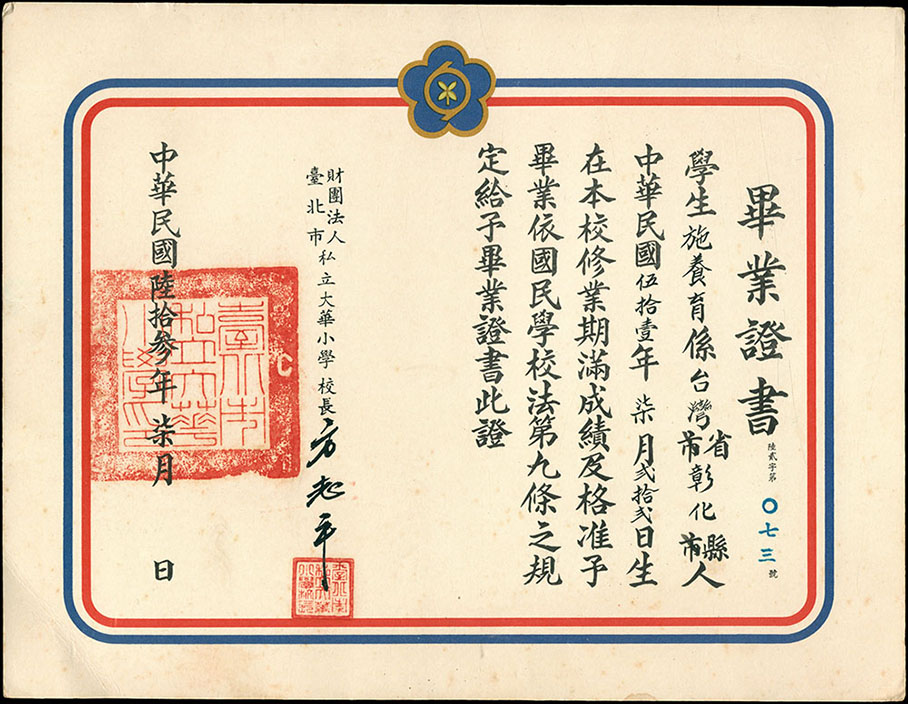 畢業證書
陸貳字第〇七三號
學生施養育係台灣省市彰化縣市人
中華民國伍拾壹年柒月貳拾貳日生
在本校修業期滿成績及格准予
畢業依國民學校法第九條之規
定給予畢業證書此證
財團法人
臺北市私立大華小學校長方志平
中華民國陸拾參年柒月 日
臺北市
私立大華
小學印